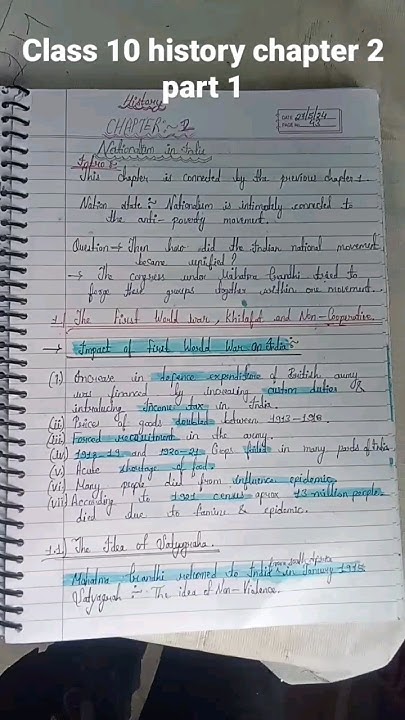 Class 10 history chapter 2
part 1
History
DATE 27/5/24
PAGE No.
CHAPTER:~ 2
Nationalism in India
Intro:-
This chapter is connected by the previous chapter 1.
Nation state :~ Nationalism is intimately connected to
the anti- poverty movement.
Question → Then how did the Indian national movement
became unified?
→ The congress under Mahatma Gandhi tried to
forge these groups together within one movement.
1) The First World war, Khilafat and Non-Cooperative.
→ Impact of First World War on India:~
(i) Increase in defence expenditure of British army
was financed by increasing custom duties &
introducing income tax in India.
(ii) Prices of goods doubled between 1913-1918.
(iii) Forced recruitment in the army.
(iv) 1918-19 and 1920-21 Crops failed in many parts of India.
(v) Acute shortage of food.
(vi) Many people died from influenza epidemic.
(vii) According to 1921 census aprox 13 million people
died due to famine & epidemic.
1.1) The Idea of Satyagraha.
from South Africa
Mahatma Gandhi returned to India in January 1915
Satyagrah :- The idea of Non-Violence.